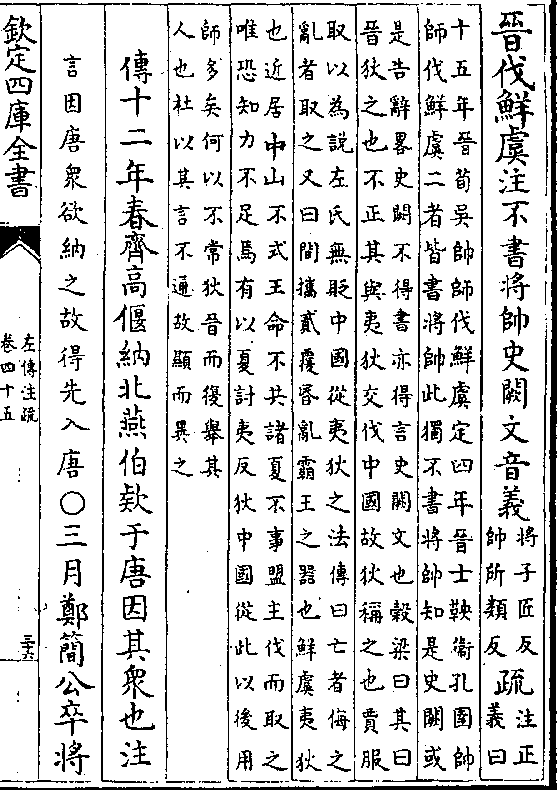 晉伐鮮虞注不書將帥史闕文音義將子匠反帥所類反疏注正義曰
十五年晉荀吳帥師伐鮮虞定四年晉士鞅衞孔圉帥
師伐鮮虞二者皆書將帥此獨不書將帥知是史闕或
是告辭畧史闕不得書亦得言史闕文也穀梁曰其曰
晉狄之也不正其與夷狄交伐中國故狄稱之也賈服
取以為說左氏無貶中國從夷狄之法傳曰亡者侮之
亂者取之又曰間攜貳覆昏亂霸王之器也鮮虞夷狄
也近居中山不式王命不共諸夏不事盟主伐而取之
唯恐知力不足焉有以夏討夷反狄中國從此以後用
師多矣何以不常狄晉而復舉其
人也杜以其言不通故顯而異之
傳十二年春齊高偃納北燕伯欵于唐因其衆也注
言因唐衆欲納之故得先入唐○三月鄭簡公卒將
欽定四庫全書
左傳注疏
卷四十五
三六